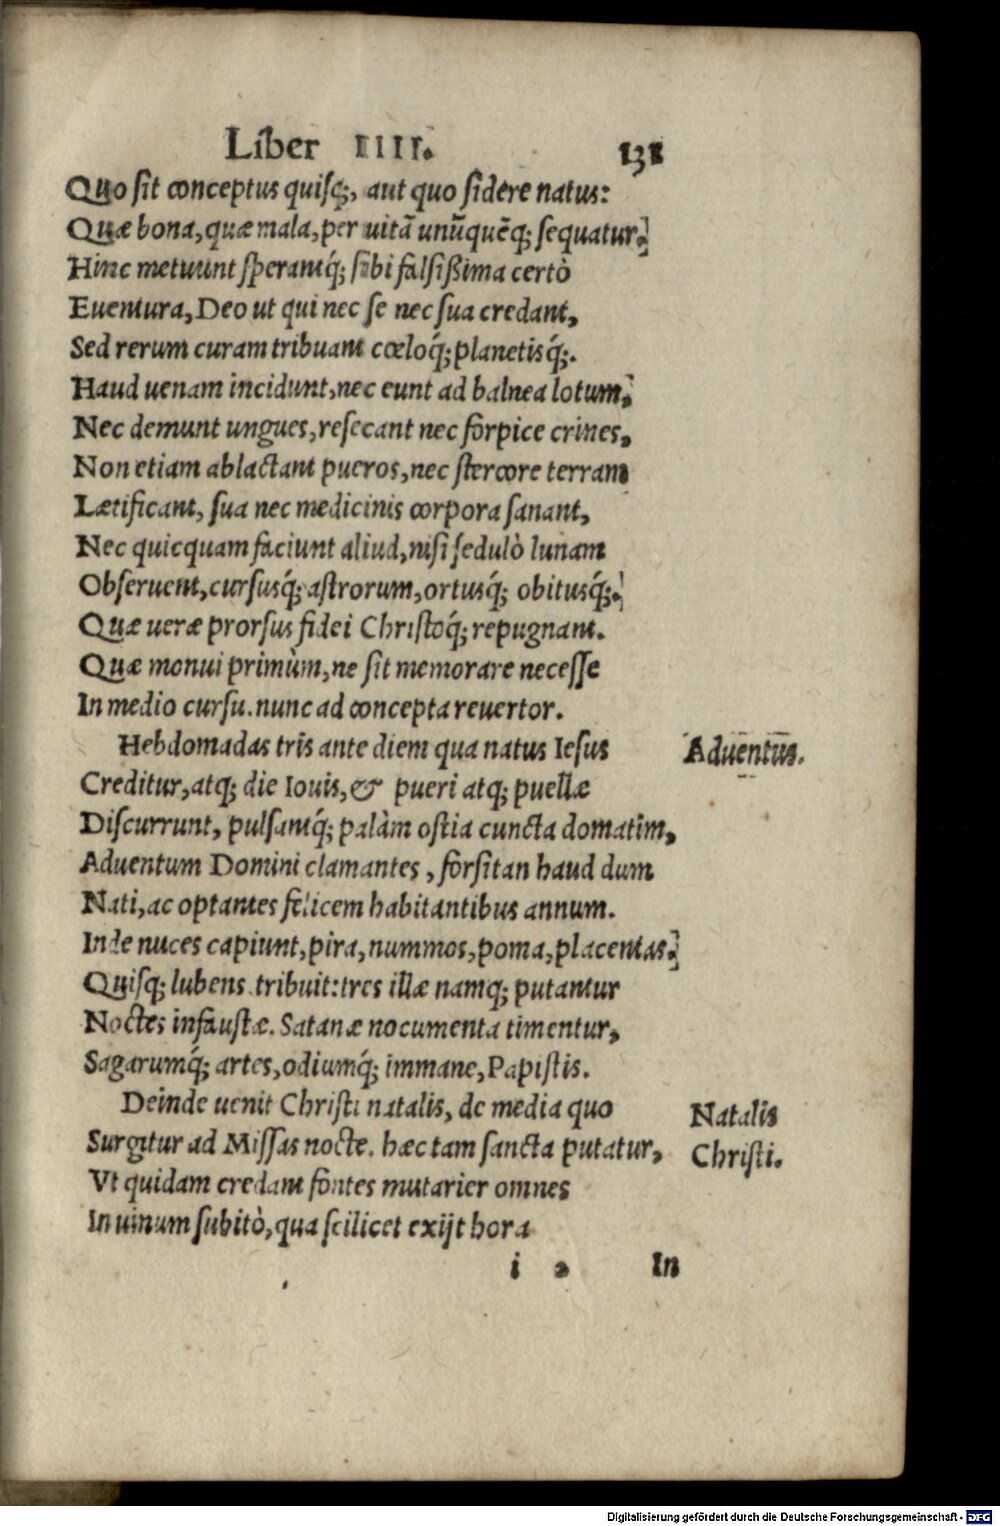 Liber IIII. 131
Quo sit conceptus quisq;, aut quo sidere natus:
Quæ bona, quæ mala, per uitã unũquẽq; sequatur.
Hinc metuunt sperantq́; sibi falsißima certò
Euentura, Deo ut qui nec se nec sua credant,
Sed rerum curam tribuant cœloq́; planetisq́;.
Haud uenam incidunt, nec eunt ad balnea lotum,
Nec demunt ungues, resecant nec forpice crines,
Non etiam ablactant pueros, nec stercore terram
Lætificant, sua nec medicinis corpora sanant,
Nec quicquam faciunt aliud, nisi sedulò lunam
Obseruent, cursusq́; astrorum, ortusq́; obitusq́;.
Quæ ueræ prorsus fidei Christoq́; repugnant.
Quæ monui primùm, ne sit memorare necesse
In medio cursu. nunc ad concepta reuertor.
Hebdomadas tris ante diem qua natus Iesus
Aduentus.
Creditur, atq; die Iouis, & pueri atq; puellæ
Discurrunt, pulsantq́; palàm ostia cuncta domatim,
Aduentum Domini clamantes, forsitan haud dum
Nati, ac optantes felicem habitantibus annum.
Inde nuces capiunt, pira, nummos, poma, placentas.
Quisq; lubens tribuit: tres illæ namq; putantur
Noctes infaustæ. Satanæ nocumenta timentur,
Sagarumq́; artes, odiumq́; immane, Papistis.
Deinde uenit Christi natalis, de media quo
Natalis
Surgitur ad Missas nocte. hæc tam sancta putatur,
Christi.
Vt quidam credant fontes mutarier omnes
In uinum subitò, qua scilicet exijt hora
i 2 In
Digitalisierung gefördert durch die Deutsche Forschungsgemeinschaft - DFG